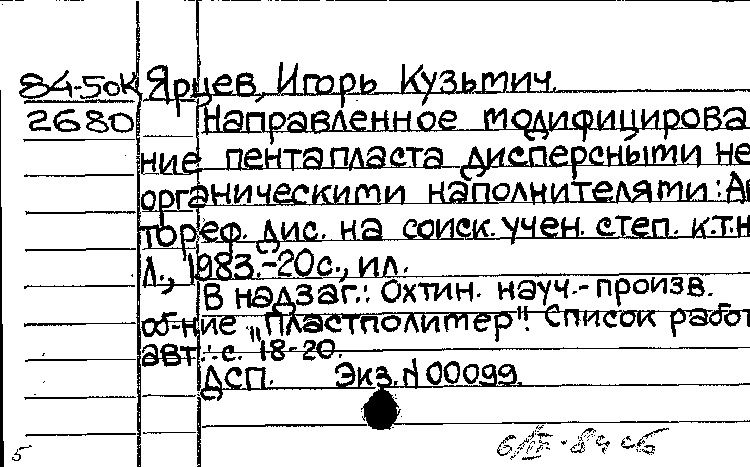 84-50к Ярцев, Игорь Кузьмич.
2680 Направленное модифицирова
ние пентапласта дисперсными не
органическими наполнителями: Ав
тореф. дис. на соиск. учен. степ. к.т.н
Л., 1983.-20с., ил.
В надзаг.: Охтин. науч.-произв.
об-ние „Пластполимер". Список работ
авт.: с. 18-20.
ДСП. Экз. N 00099.
5